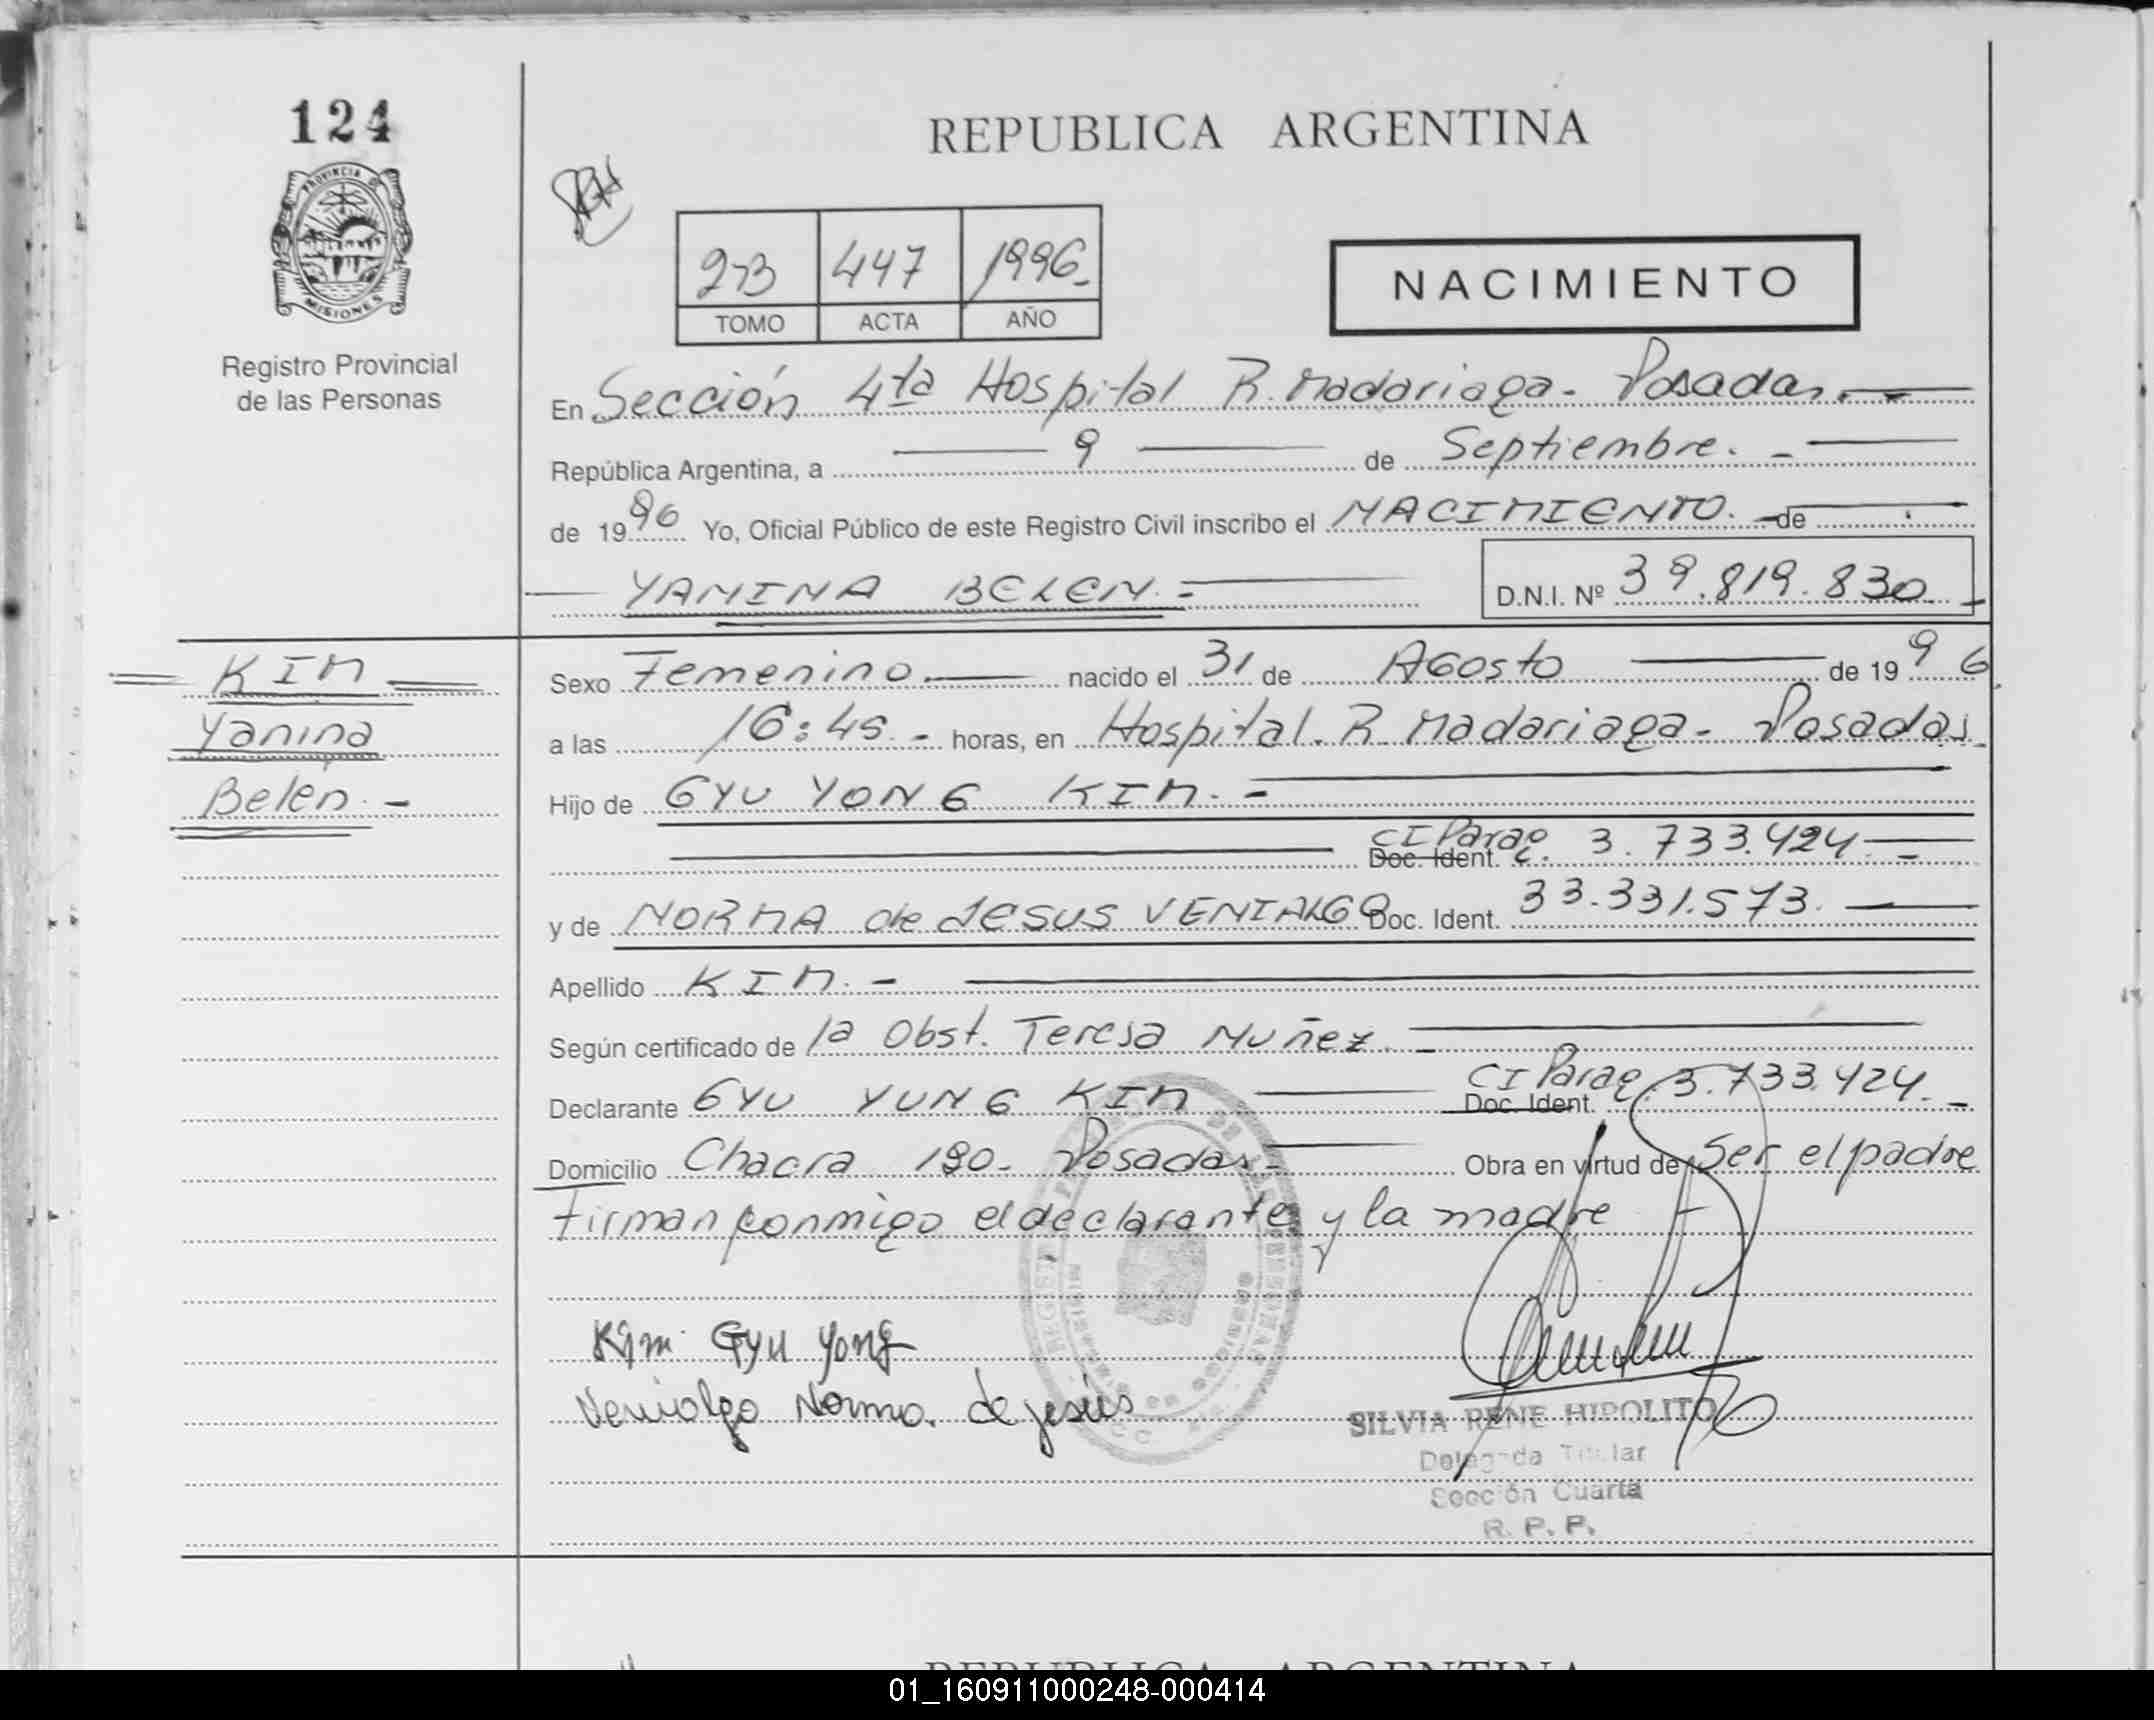 124
PROVINCIA DE
MISIONES
Registro Provincial
de las Personas
REPUBLICA ARGENTINA
273 447 1996.-
TOMO ACTA AÑO
NACIMIENTO
En Sección 4ta Hospital R. Madariaga - Posadas.
República Argentina, a 9 de Septiembre. -
de 1996 Yo, Oficial Público de este Registro Civil inscribo el NACIMIENTO. - de
YANINA BELEN. -
D.N.I. Nº 39.819.830 -
KIM
Yanina
Belén. -
Sexo Femenino. nacido el 31 de Agosto de 1996
a las 16:45. - horas, en Hospital. R. Madariaga - Posadas.
Hijo de GYU YONG KIM. -
CI Parag. Doc. Ident. 3.733.424. -
y de NORMA de JESUS VENIALGO Doc. Ident. 33.331.573.
Apellido KIM. -
Según certificado de la Obst. Teresa Nuñez. -
Declarante GYU YUNG KIM CI Parag. Doc. Ident. 3.733.424. -
Domicilio Chacra 190 - Posadas. - Obra en virtud de Ser el padre
Firman conmigo el declarante y la madre
Kim Gyu Yong
Venialgo Norma. de jesús
SILVIA RENE HIPOLITO
Delegada Titular
Sección Cuarta
R. P. P.
REPUBLICA ARGENTINA
01_160911000248-000414